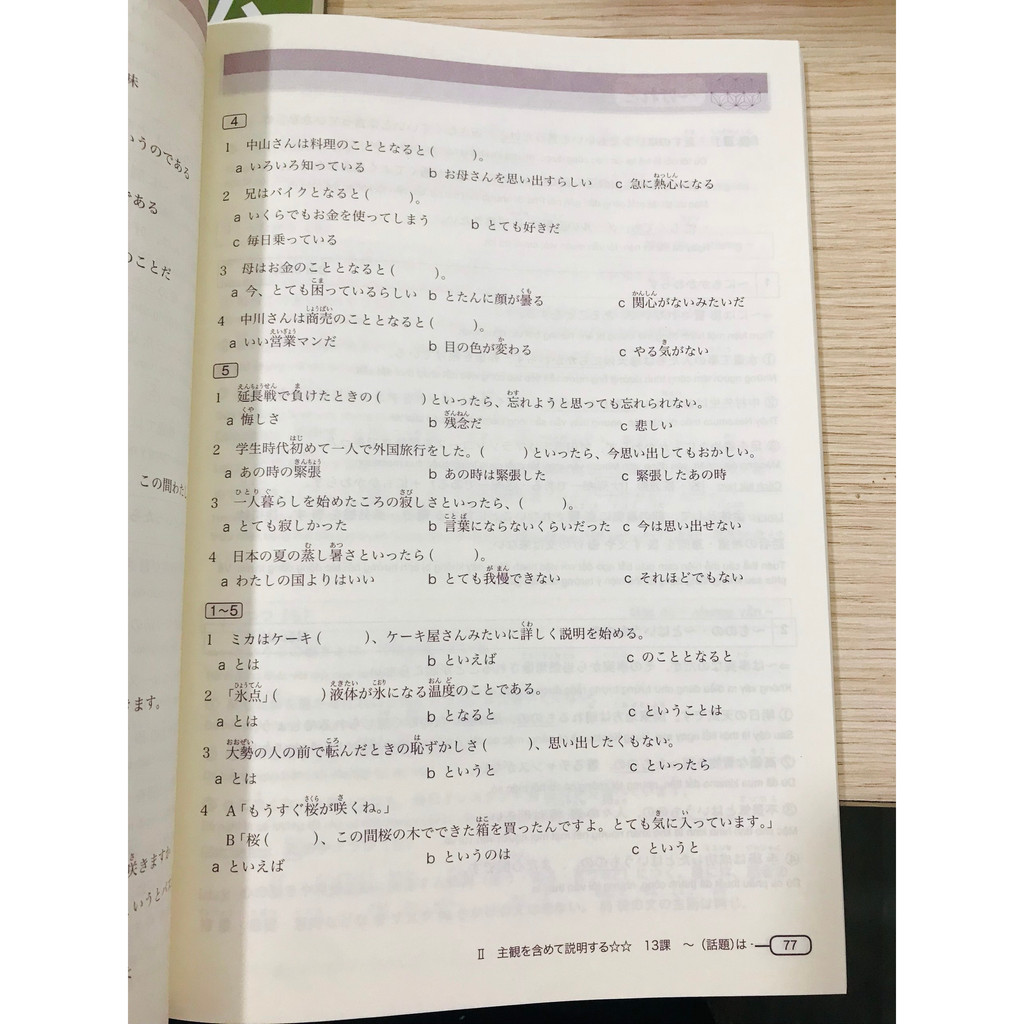 味
いうのである
である
のことだ
この間わた
きます。
咲きますか
4
1 中山さんは料理のこととなると( )。
a いろいろ知っている b お母さんを思い出すらしい c 急に熱心になる
2 兄はバイクとなると( )。
a いくらでもお金を使ってしまう b とても好きだ
c 毎日乗っている
3 母はお金のこととなると( )。
a 今、とても困っているらしい b とたんに顔が曇る c 関心がないみたいだ
4 中川さんは商売のこととなると( )。
a いい営業マンだ b 目の色が変わる c やる気がない
5
1 延長戦で負けたときの( )といったら、忘れようと思っても忘れられない。
a 悔しさ b 残念だ c 悲しい
2 学生時代初めて一人で外国旅行をした。( )といったら、今思い出してもおかしい。
a あの時の緊張 b あの時は緊張した c 緊張したあの時
3 一人暮らしを始めたころの寂しさといったら、( )。
a とても寂しかった b 言葉にならないくらいだった c 今は思い出せない
4 日本の夏の蒸し暑さといったら( )。
a わたしの国よりはいい b とても我慢できない c それほどでもない
1~5
1 ミカはケーキ( )、ケーキ屋さんみたいに詳しく説明を始める。
a とは b といえば c のこととなると
2 「氷点」( )液体が氷になる温度のことである。
a とは b となると c ということは
3 大勢の人の前で転んだときの恥ずかしさ( )、思い出したくもない。
a とは b というと c といったら
4 A「もうすぐ桜が咲くね。」
B「桜( )、この間桜の木でできた箱を買ったんですよ。とても気に入っています。」
a といえば b というのは c というと
Ⅱ 主観を含めて説明する☆☆ 13課 ~(話題)は - 77